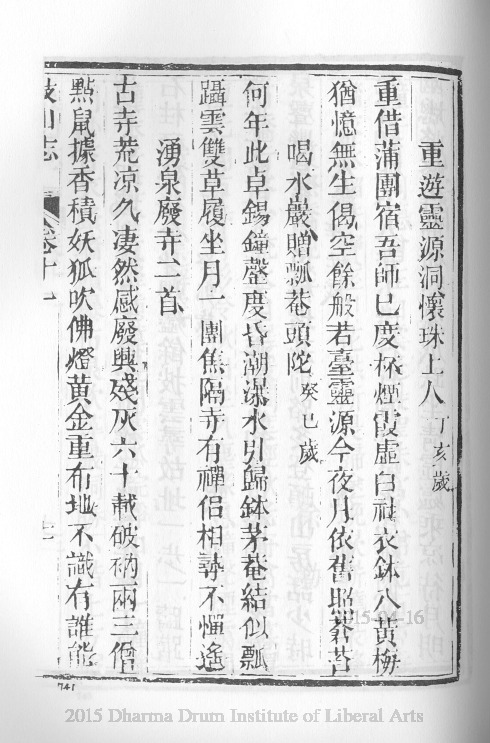 重遊靈源洞懷珠上人 丁亥歲
重借蒲團宿吾師已度杯煙霞虛白社衣鉢入黃梅
猶憶無生偈空餘般若臺靈源今夜月依舊照莓苔
喝水巖贈瓢菴頭陀 癸巳歲
何年此卓錫鐘聲度昏潮瀑水引歸鉢茅菴結似瓢
躡雲雙草履坐月一團焦隔寺有禪侶相尋不憚遙
湧泉廢寺二首
古寺荒凉久凄然感廢興殘灰六十載破衲兩三僧
黠鼠據香積妖狐吹佛燈黃金重布地不識有誰能
鼓山志 卷十一
741
2015 Dharma Drum Institute of Liberal Arts